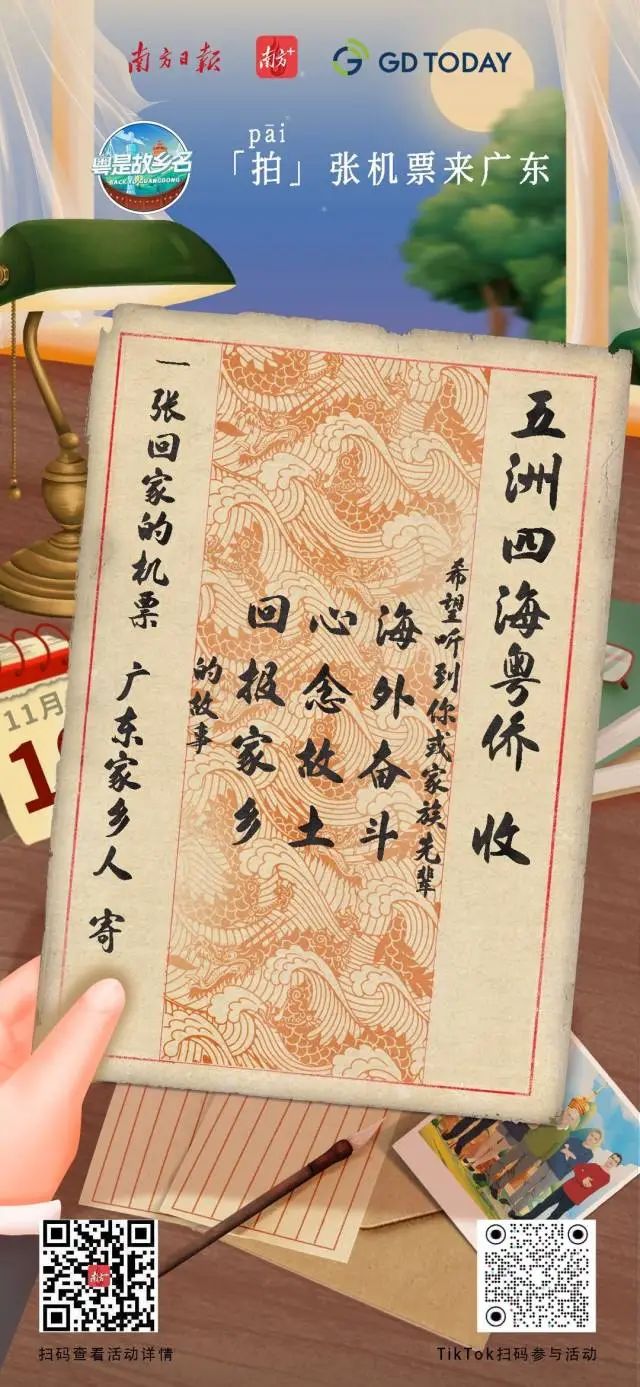 南方日报
南方+
GD TODAY
粤是故乡名
BACK TO GUANGDONG
pāi
「拍」张机票来广东
五洲四海粤侨 收
希望听到你或家族先辈
海外奋斗
心念故土
回报家乡
的故事
一张回家的机票 广东家乡人 寄
11月
南方+
扫码查看活动详情
TikTok扫码参与活动